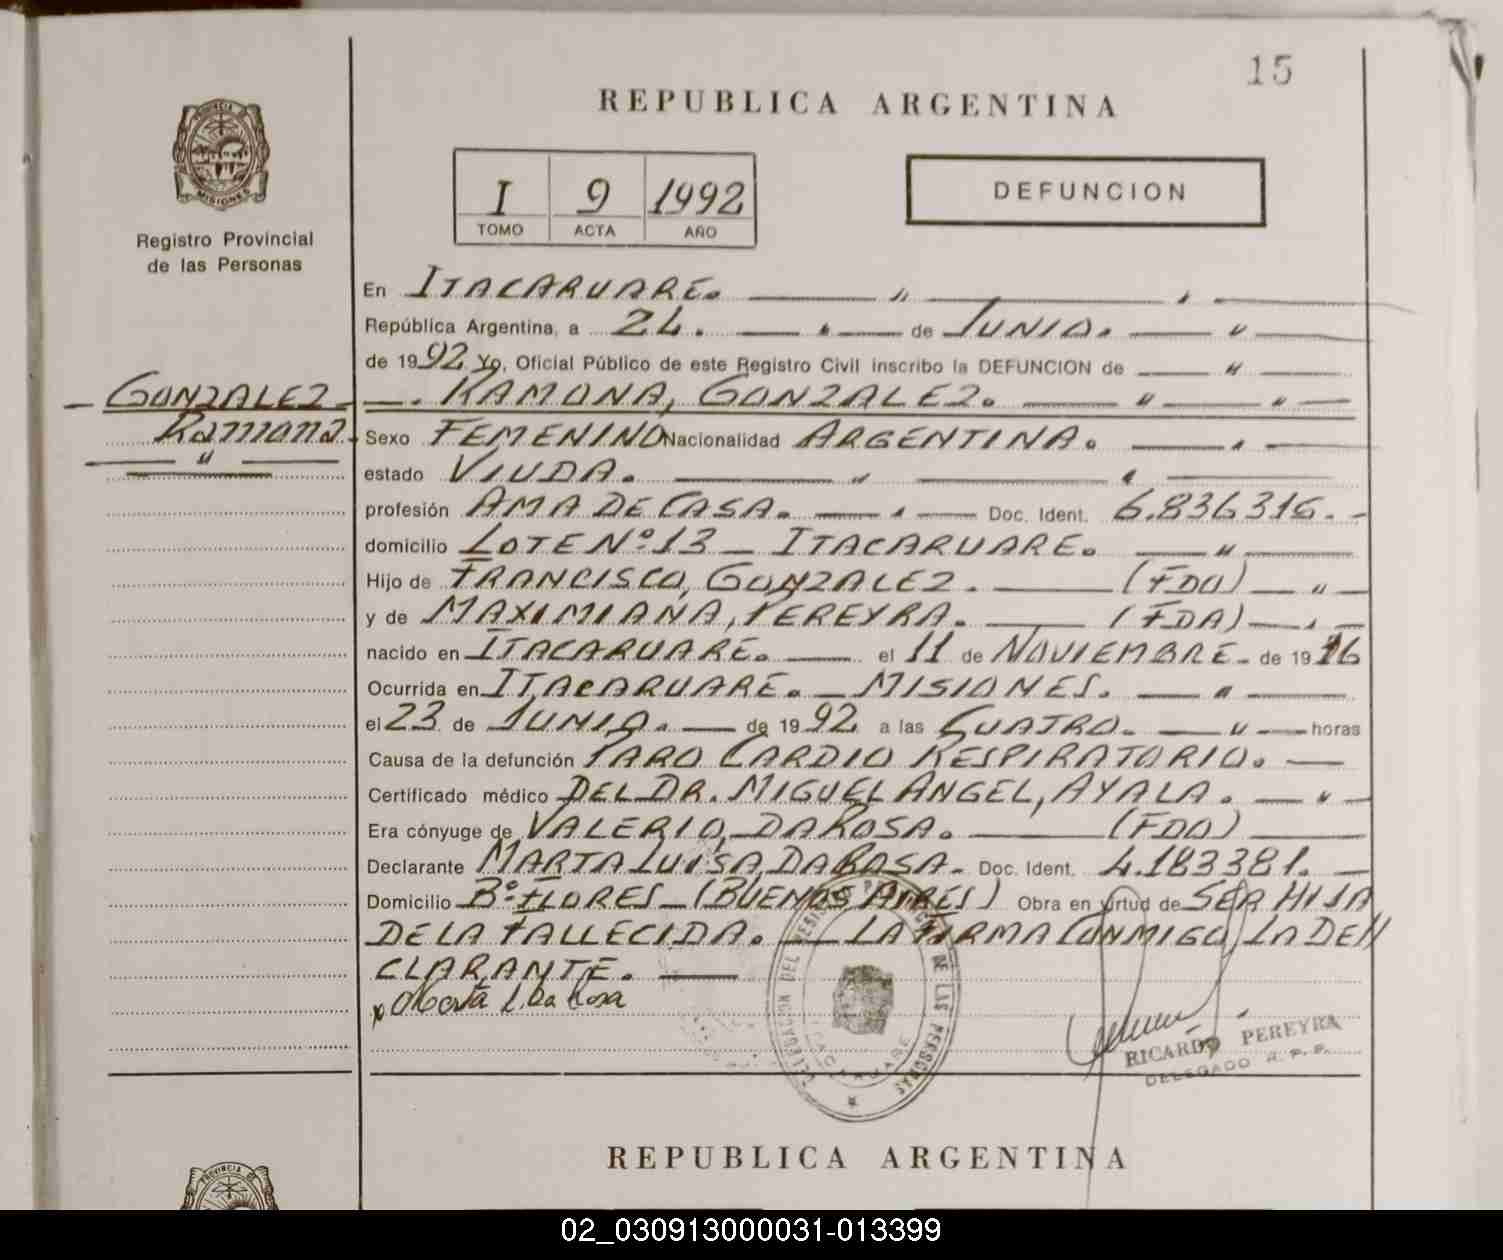 15
REPUBLICA ARGENTINA
I 9 1992
TOMO ACTA AÑO
DEFUNCION
MISIONES
Registro Provincial
de las Personas
GONZALEZ
Ramona
En ITACARUARE.
República Argentina, a 24. de JUNIO.
de 1992 Yo, Oficial Público de este Registro Civil inscribo la DEFUNCION de
RAMONA, GONZALEZ.
Sexo FEMENINO Nacionalidad ARGENTINA.
estado VIUDA.
profesión AMA DE CASA. Doc. Ident. 6.836316.
domicilio LOTE Nº 13 - ITACARUARE.
Hijo de FRANCISCO, GONZALEZ. (FDO)
y de MAXIMIANA, PEREYRA. (FDA)
nacido en ITACARUARE. el 11 de NOVIEMBRE. de 1916
Ocurrida en ITACARUARE. - MISIONES.
el 23 de JUNIO. de 1992 a las CUATRO. horas
Causa de la defunción PARO CARDIO RESPIRATORIO.
Certificado médico DEL DR. MIGUEL ANGEL, AYALA.
Era cónyuge de VALERIO, DA ROSA. (FDO)
Declarante MARTA LUISA, DA ROSA. Doc. Ident. 4.183381.
Domicilio Bº FLORES - (BUENOS AIRES) Obra en virtud de SER HIJA
DE LA FALLECIDA. LA FIRMA CONMIGO, LA DE//
CLARANTE.
x Marta L. Da Rosa
DELEGACION DEL REGISTRO PROVINCIAL DE LAS PERSONAS
ITACARUARE
RICARDO PEREYRA
DELEGADO R. P. P.
REPUBLICA ARGENTINA
PROVINCIA DE
02_030913000031-013399